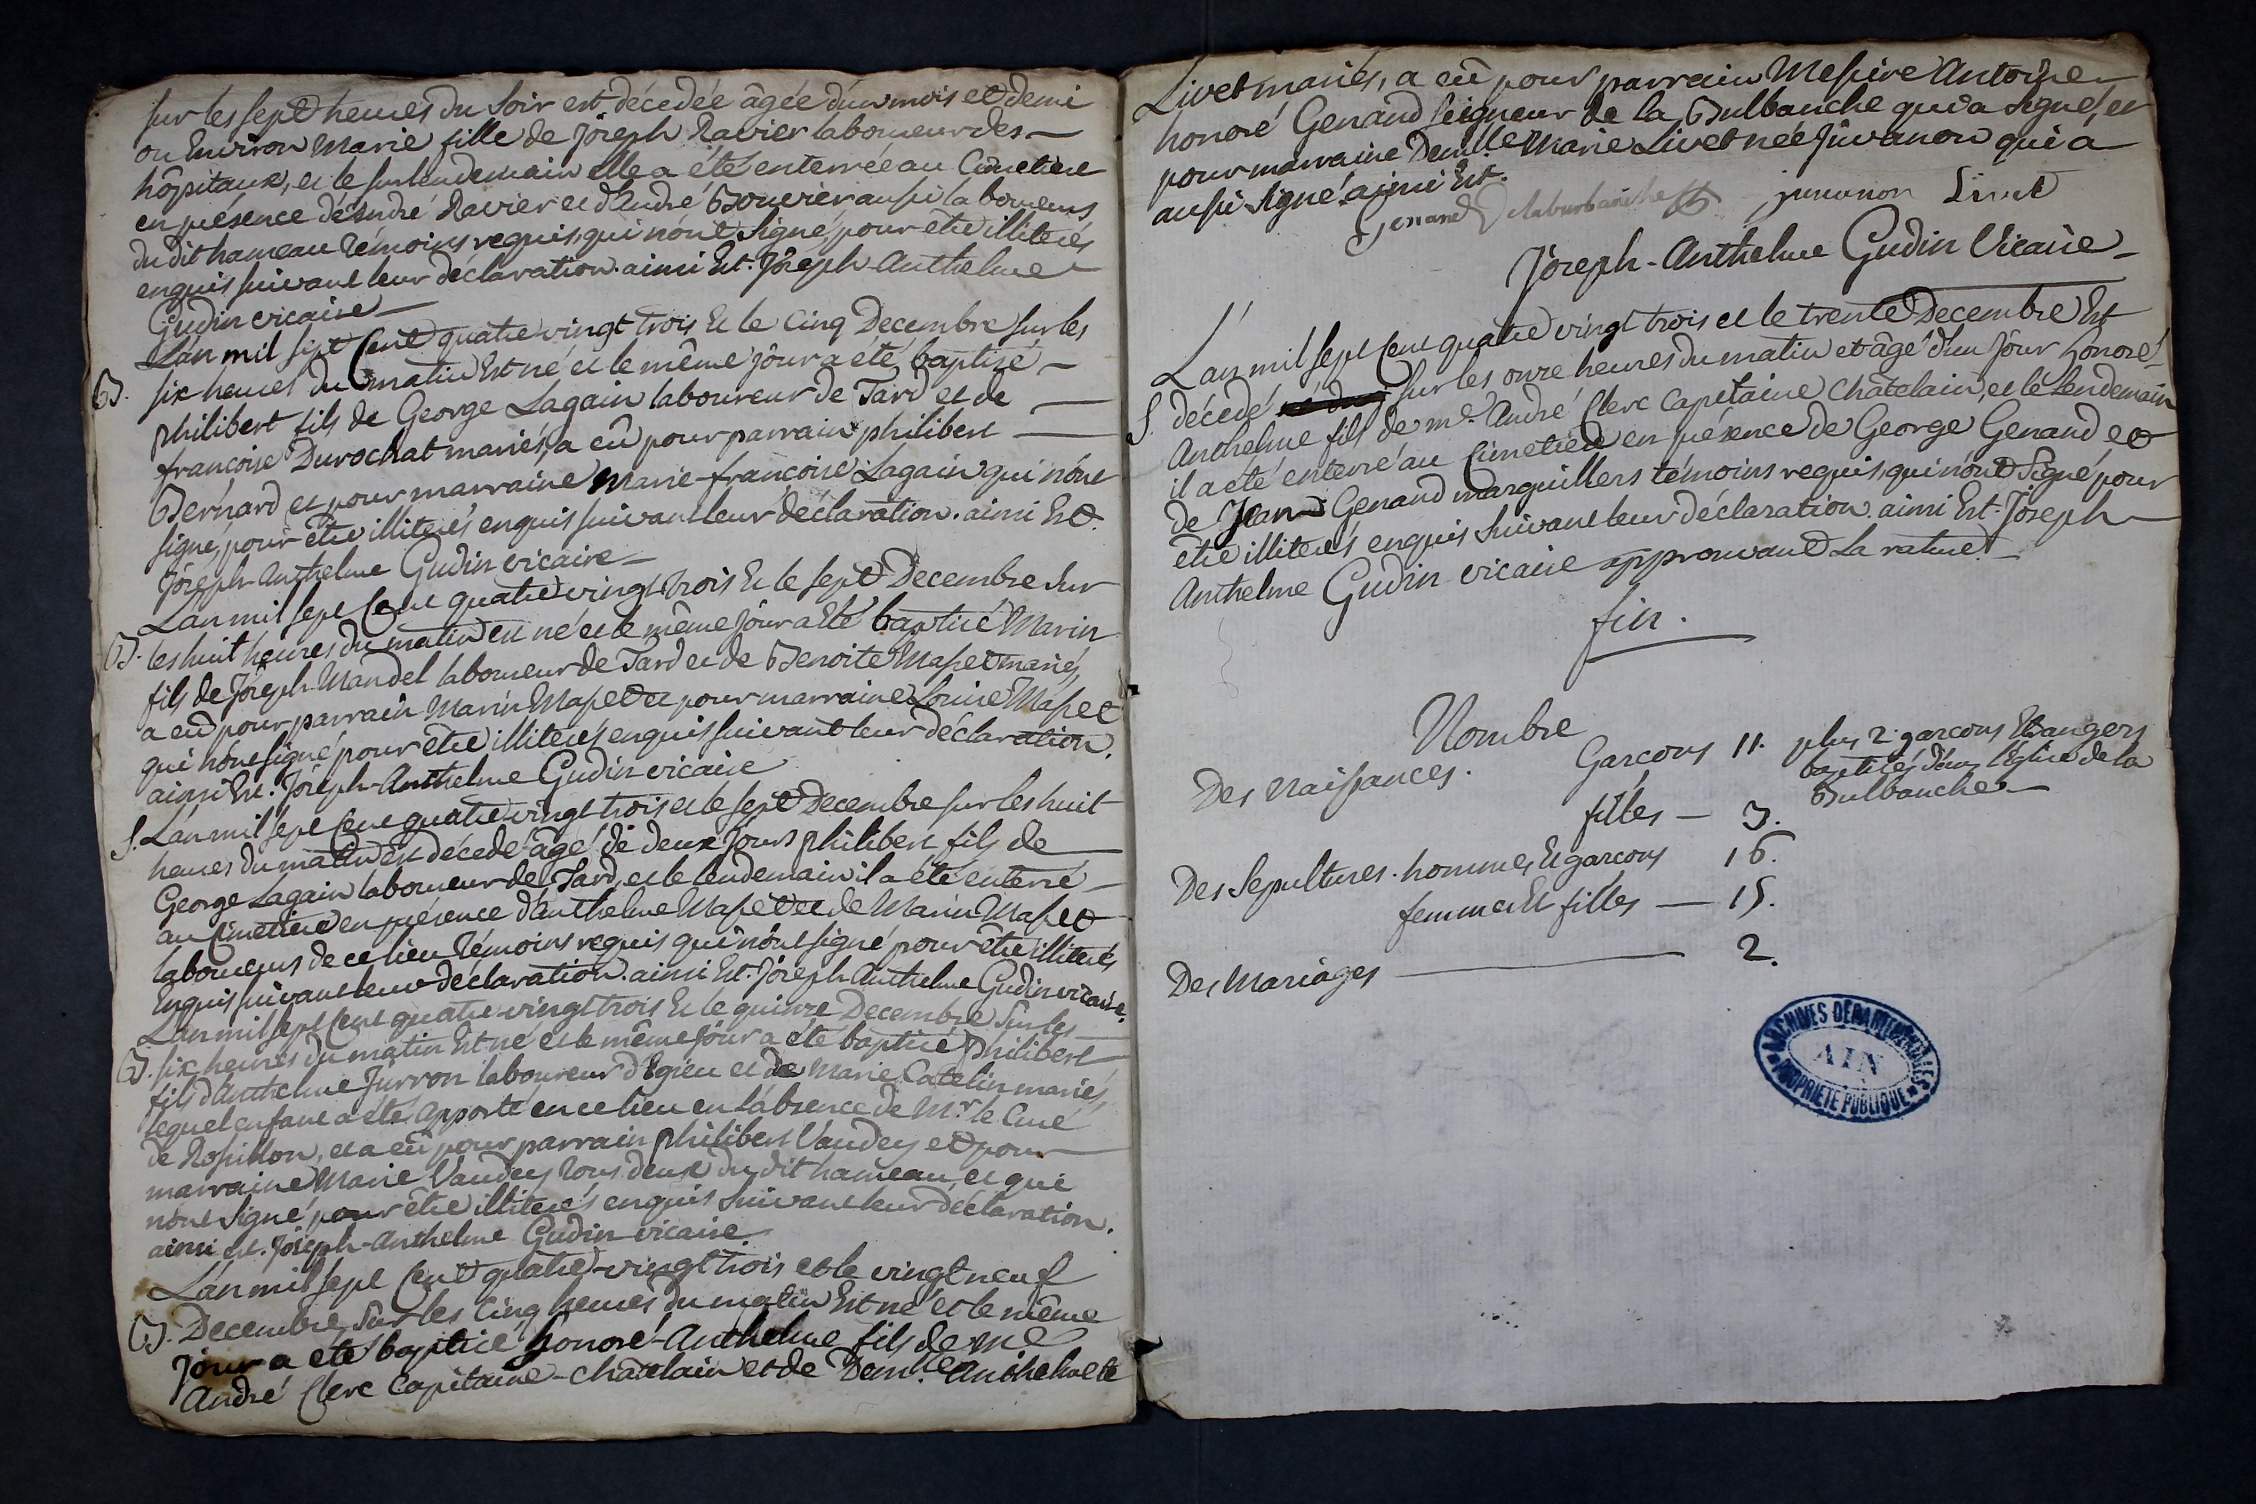 sur les sept heures du soir est décedée âgée d'un mois et demi
ou Environ Marie fille de Jóseph Ravier laboureur des
hôpitaux, et le surlendemain elle a été enterrée au Cimetiere
en présence d'André Ravier et d'André Bouvier aussi laboureurs
du dit hameau témoins requis, qui n'ont Signé, pour être illiterés
enquis suivant leur déclaration. ainsi Est. Jóseph-Anthelme
Gudin vicaire
L'an mil sept Cent quatre vingt trois Et le Cinq Decembre sur les
B. six heures du matin Est né et le même jôur a été baptisé
philibert fils de George Lagain laboureur de Tard et de
francoise Durochat mariés, a eû pour parrain philibert
Bernard et pour marraine Marie-francoise Lagain qui n'ont
signé, pour être illiterés enquis suivant leur déclaration. ainsi Est.
Jóseph-Anthelme Gudin vicaire
L'an mil sept Cent quatre vingt trois Et le sept Decembre sur
B. les huit heures du matin est né et le même jôur a Eté baptisé Marin
fils de Jóseph Mandel laboureur de Tard et de Benoite Masset mariés,
a eû pour parrain Marin Masset et pour marraine Louise Masset
qui n'ont signé pour être illiterés enquis suivant leur déclaration.
ainsi Est. Jóseph-Anthelme Gudin vicaire
S. L'an mil sept Cent quatre vingt trois et le sept Decembre sur les huit
heures du matin Est décedé âgé de deux jôurs philibert fils de
George Lagain laboureur de Tard, et le lendemain il a été enterré
au Cimetiere en présence d'Anthelme Masset et de Marin Masset
laboureurs de ce lieu témoins requis qui n'ont signé pour être illiterés
Enquis suivant leur déclaration. ainsi Est. Jóseph Anthelme Gudin vicaire.
L'an mil sept Cent quatre-vingt trois Et le quinze Decembre Sur les
B. six heures du matin Est né et le même jôur a été baptisé philibert
fils d'Anthelme Jurron laboureur d'Egieu et de Marie Catelin mariés,
lequel enfant a été apporté en ce lieu en l'absence de Mr. le Curé
de Rossillon, et a eû pour parrain philibert Vaudey et pour
marraine Marie Vaudey tous deux du dit hameau, et qui
n'ont Signé, pour être illiterés enquis suivant leur déclaration.
ainsi est. Jóseph-Anthelme Gudin vicaire
L'an mil sept Cent quatre-vingt trois et le vingt neuf
B. Decembre, Sur les Cinq heures du matin Est né et le même
Jôur a été baptisé honoré-Anthelme fils de me
André Clerc Capitaine-chatelain et de Demlle. Anthelmette
Livet mariés, a eû pour parrain Messire Antoine
honoré Genand Seigneur de la Bulbanche qui a signé, et
pour marraine Demlle. Marie Livet née Juvanon qui a
aussi Signé. ainsi Est.
Genand delaburbanche juvanon Livet
Jóseph-Anthelme Gudin Vicaire
L'an mil sept Cent quatre vingt trois et le trente Decembre Est
S. décedé sur les onze heures du matin et âgé d'un jôur honoré-
Anthelme fils de me. André Clerc Capitaine Châtelain, et le Lendemain
il a été enterré au Cimetiere en présence de George Genand et
de Jean Genand marguillers témoins requis, qui n'ont Signé pour
être illiterés enquis suivant leur déclaration. ainsi Est. Jóseph
Anthelme Gudin vicaire approuvant la rature
fin.
Nombre
Des Naissances. Garcons 11. plus 2. garcons Etrangers
baptisés dans l'Eglise de la
Bulbanche
filles — 3.
Des Sepultures. hommes Et garcons 16.
femmes Et filles — 15.
Des Mariages — 2.
ARCHIVES DÉPARTEMENTALES
AIN
PROPRIÉTÉ PUBLIQUE